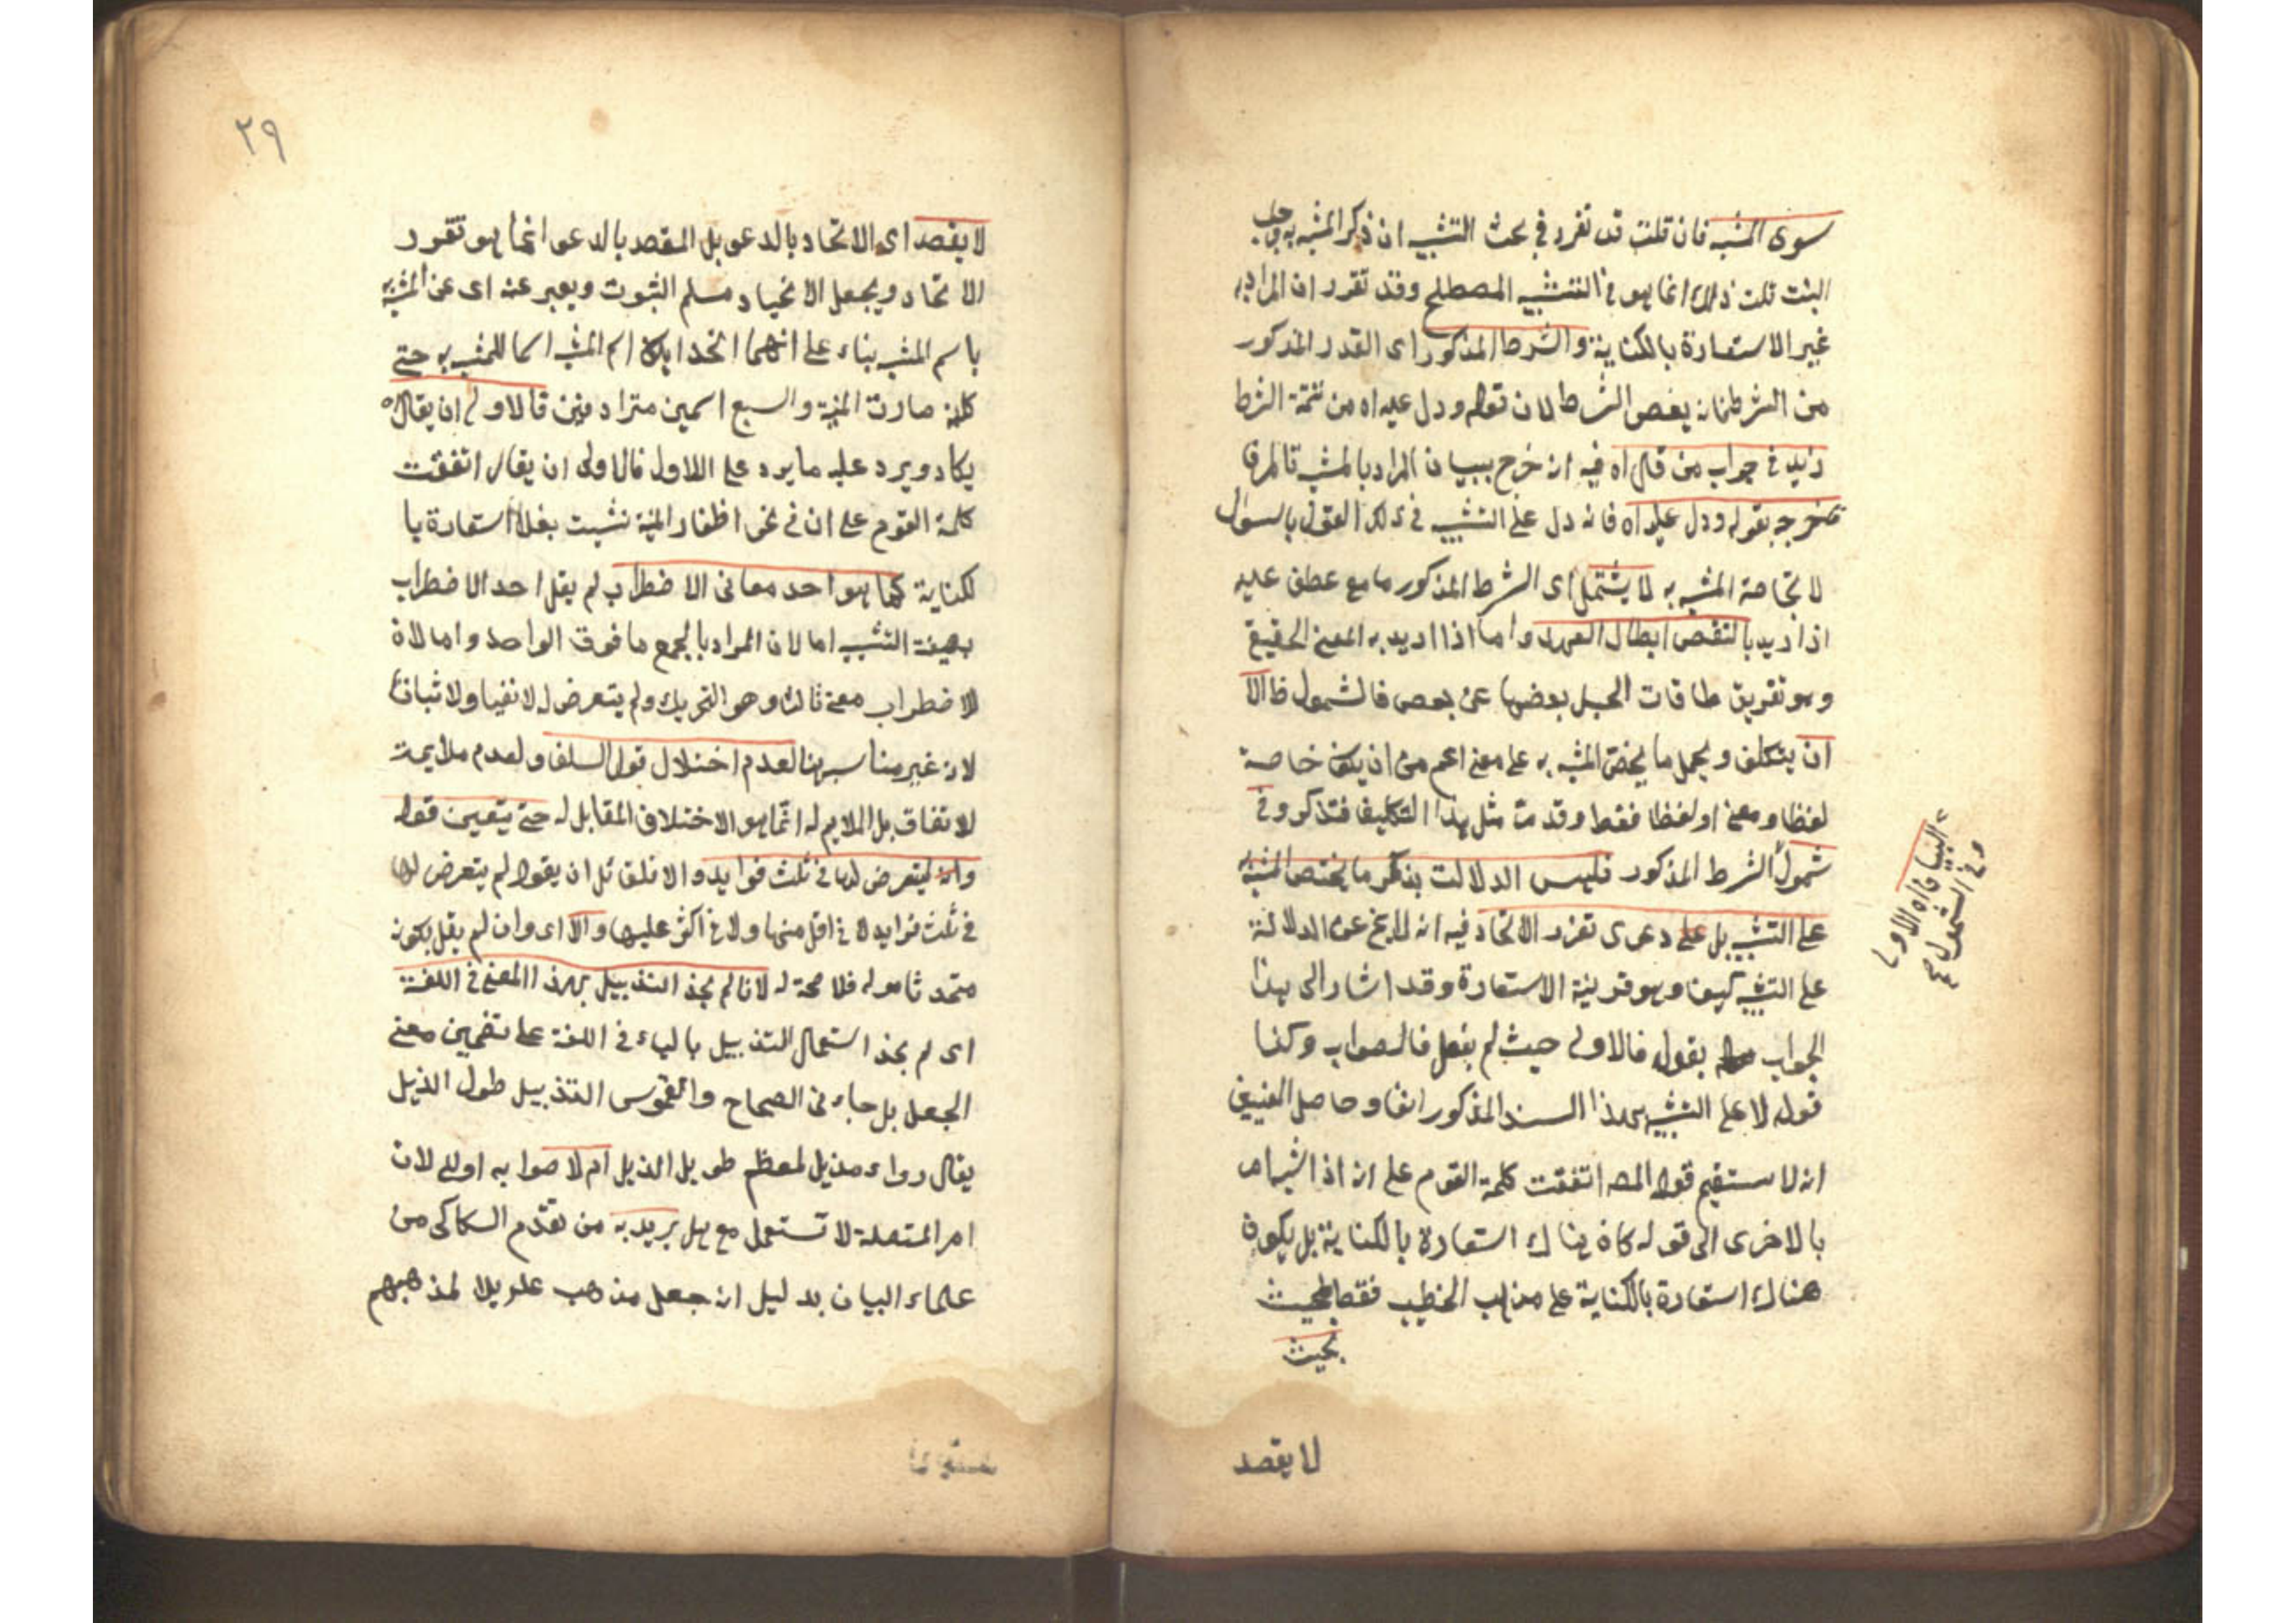 سوى المشبه فان قلت قد تقرر في بحث التشبيه ان ذكر المشبه به واجب
البتة قلت ذلك انما هو في التشبيه المصطلح وقد تقرر ان المراد به
غير الاستعارة بالكناية والشرط المذكور اى القدر المذكور
من الشرط فانه بعض الشرط لان قوله ودل عليه اه من تتمة الشرط
زيد في جواب من قال اه فيه انه خرج ببيان المراد بالمشبه
نخرجه بقوله ودل عليه اه فانه دل على التشبيه في ذلك القول بالسؤال
لا بخاصة المشبه به لا يشتمل اى الشرط المذكور ما مع عطف عليه
اذا اريد بالنقض ابطال العهد واما اذا اريد به المعنى الحقيقي
وهو تفريق طاقات الحبل بعضها عن بعض فالشمول ظ الا
ان يتكلف ويحمل ما يخص المشبه به على معنى اعم من ان يكون خاصة
لفظا ومعنى او لفظا فقط وقد مر مثل هذا التكليف فتذكر وفى
شمول الشرط المذكور فليس الدلالة بذكر ما يختص المشبه به
على التشبيه بل على دعوى تقرر الاتحاد فيه انه لا يخ عن الدلالة
على التشبيه كيف وهو قرينة الاستعارة وقد اشار الى هذا
الجواب بقوله فالاولى حيث لم يفعل فالصواب وكذا
قوله لا على التشبيه هذا السند المذكور انفا وحاصل المعنيين
انه لا يستقيم قول المص اتفقت كلمة القوم على انه اذا شبه امر
بالاخرى الى قوله كان هناك استعارة بالكناية بل يكون
هناك استعارة بالكناية على مذهب الخطيب فقط بحيث
بحيث
لا يقصد
وفى الشمول
٢٩
لا يقصد اى الاتحاد بالدعوى بل المقصد بالدعوى انما هو تقرر
الاتحاد ويجعل الاتحاد مسلم الثبوت ويعبر عنه اى عن المشبه به
باسم المشبه بناء على انهما اتحدا اسم المشبه اسما للمشبه به حتى
كانه صارت المنية والسبع اسمين مترادفين فالاولى ان يقال اه
يكاد ويرد عليه ما يرد على الاول فالاولى ان يقال اتفقت
كلمة القوم على ان في نحو اظفار المنية نشبت بفلان استعارة با
لكناية كما هو احد معانى الاضطراب لم يقل احد الاضطراب
بصيغة التشبيه اما لان المراد بالجمع ما فوق الواحد واما لان
للاضطراب معنى ثالث وهو التحريك ولم يتعرض له لا نفيا ولا اثباتا
لانه غير مناسب هنا لعدم اختلال قول السلف ولعدم ملايمة
للاتفاق بل الملايم له انما هو الاختلاف المقابل له حتى يتعين قوله
وانه ليتعرض لها في ثلث فوايد والا فلق قل ان يقول لم يتعرض لها
في ثلث فرايد لا في اقل منها ولا في اكثر عليها والا اى وان لم يقل بكونه
متحدثا موله فلا صحة له لانا لم نجد التذييل بهذا المعنى في اللغة
اى لم نجد استعمال التذييل بالياء في اللغة على تضمين معنى
الجعل بل جاء في الصحاح والقاموس التذييل طول الذيل
يقال رداء مذيل لمعظم طويل الذيل ام لا صوابه او لا لان
ام المتصلة لا تستعمل مع هل يريد به من تقدم السكاكى من
علماء البيان بدليل ان جعل مذهب علويلا لمذهبهم